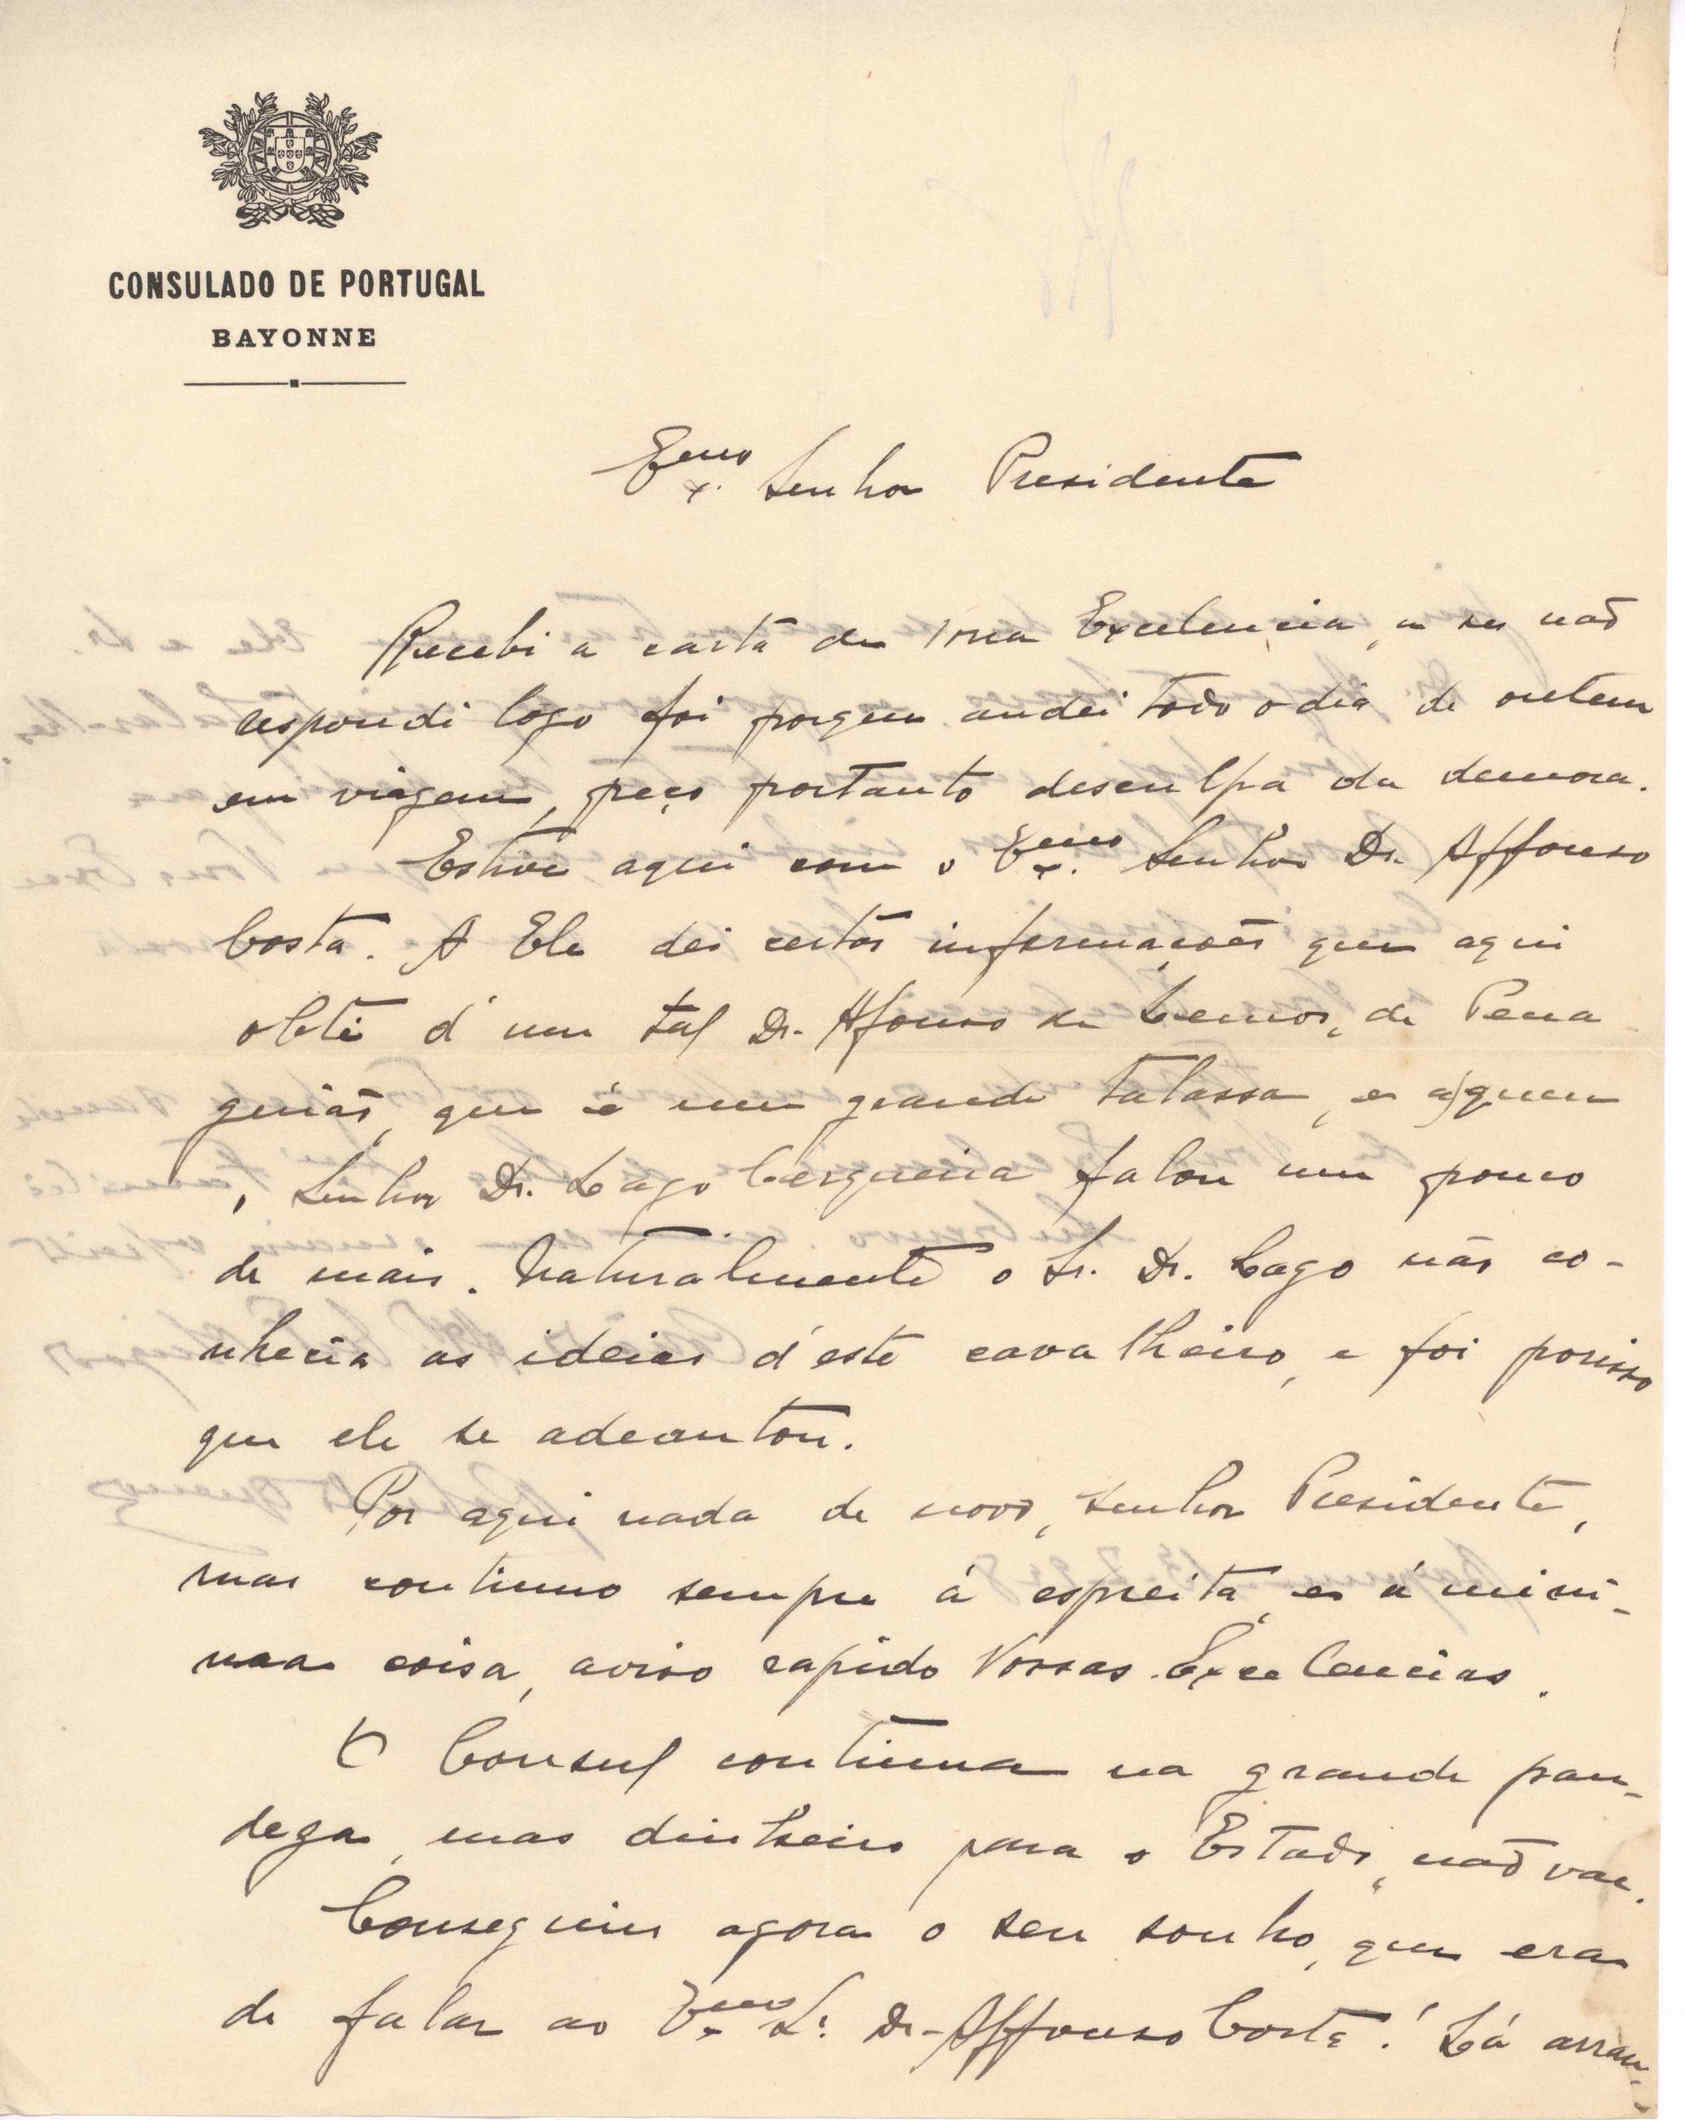 CONSULADO DE PORTUGAL
BAYONNE
Exmo. Senhor Presidente
Recebi a carta de Vossa Excelencia, e se não
respondi logo foi porque andei todo o dia de ontem
em viagem, peço portanto desculpa da demora.
Estive aqui com o Exmo. Senhor Dr. Affonso
Costa. A Ele dei certas informações que aqui
obtive d'um tal Dr. Afonso de Lemos, de Pena
guião, que é um grande talassa, e a quem
o Senhor Dr. Lago Cerqueira falou um pouco
de mais. Naturalmente o Sr. Dr. Lago não co-
nhecia as ideias d'este cavalheiro, e foi porisso
que ele se adeantou.
Por aqui nada de novo, Senhor Presidente,
mas continuo sempre á espreita, e á mini-
ma coisa, aviso rapido Vossas Excelencias.
O Consul continua na grande pan-
dega, mas dinheiro para o Estado, não vae.
Conseguiu agora o seu sonho, que era
de falar ao Exmo Sr. Dr. Affonso Costa! Lá arran-